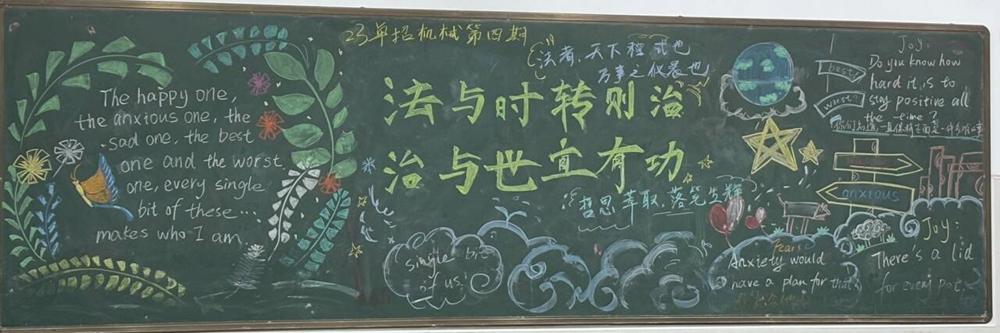 23单招机械第四期
The happy one,
the anxious one, the
sad one, the best
one and the worst
one, every single
bit of these...
makes who I am
法者,天下程式也
万事之仪表也
法与时转则治
治与世宜有功
哲思萃取,落笔生辉
single bit
of us
best
worst
Joy:
Do you know how
hard it is to
stay positive all
the time?
anxious
Fear:
Anxiety would
have a plan for that
Joy:
There's a lid
for every pot.